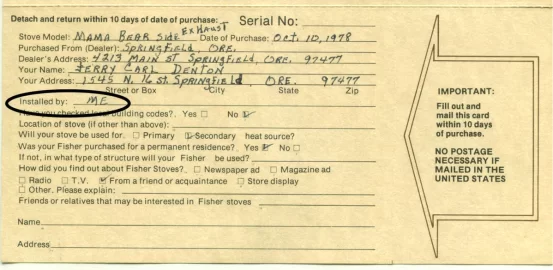 Detach and return within 10 days of date of purchase: Serial No:
Stove Model: MAMA BEAR SIDE EXHAUST Date of Purchase: OCT. 10, 1978
Purchased From (Dealer): SPRINGFIELD, ORE.
Dealer's Address: 4213 MAIN ST SPRINGFIELD, ORE. 97477
Your Name: JERRY CARL DENTON
Your Address: 1545 N. 16 ST. SPRINGFIELD, ORE. 97477
Street or Box City State Zip
Installed by: ME
Have you checked local building codes?. Yes □ No ☑
Location of stove (if other than above):
Will your stove be used for. □ Primary ☑ Secondary heat source?
Was your Fisher purchased for a permanent residence?. Yes ☑ No □
If not, in what type of structure will your Fisher be used?
How did you find out about Fisher Stoves?. □ Newspaper ad □ Magazine ad
□ Radio □ T.V. ☑ From a friend or acquaintance □ Store display
□ Other. Please explain:
Friends or relatives that may be interested in Fisher stoves
Name
Address
IMPORTANT:
Fill out and
mail this card
within 10 days
of purchase.
NO POSTAGE
NECESSARY IF
MAILED IN THE
UNITED STATES